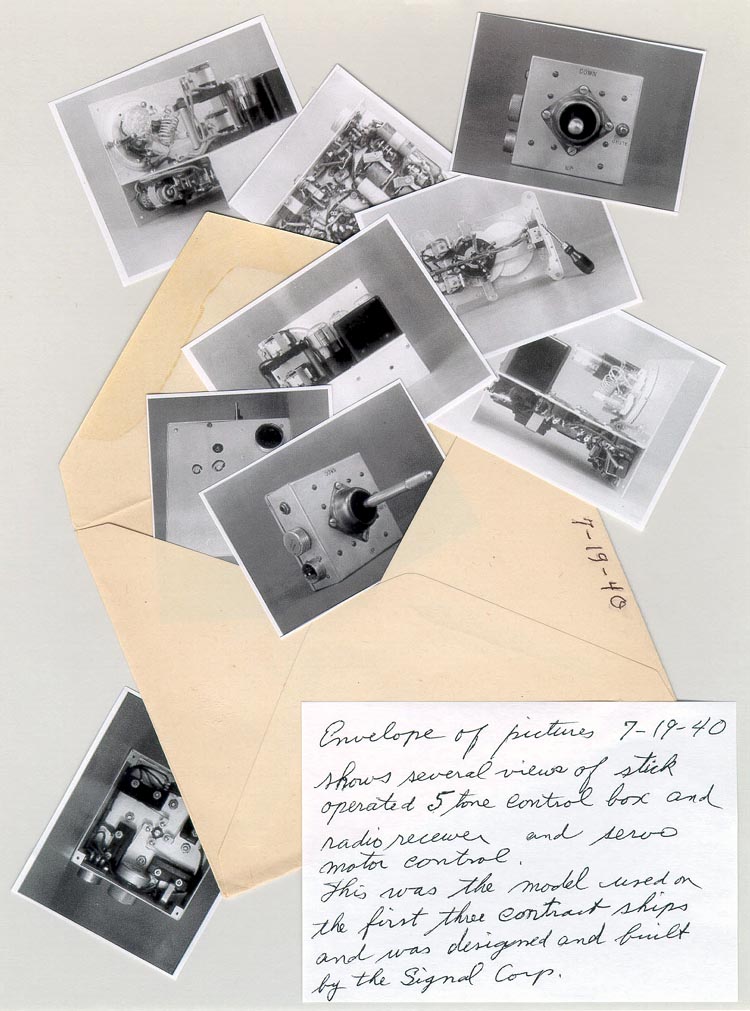 DOWN
UP
DOWN
UP
7-19-40
Envelope of pictures 7-19-40
shows several views of stick
operated 5 tone control box and
radio receiver and servo
motor control.
This was the model used on
the first three contract ships
and was designed and built
by the Signal Corp.